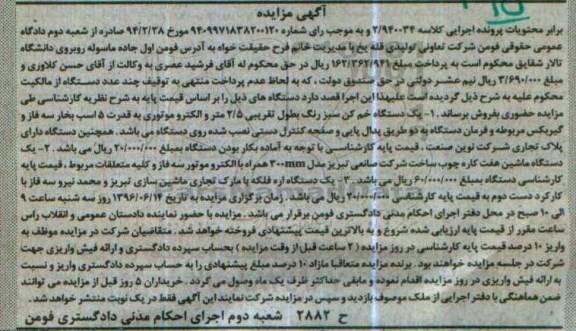 آگهی مزایده
برابر محتویات پرونده اجرایی کلاسه ۲/۹۴۰۰۳۴ و به موجب رای شماره ۹۴۰۹۹۷۱۸۳۸۲۰۰۱۲۰ مورخ ۹۴/۲/۲۸ صادره از شعبه دوم دادگاه
عمومی حقوقی فومن شرکت تعاونی تولیدی فله یخ با مدیریت خانم فرح حقیقت خواه به آدرس فومن اول جاده ماسوله روبروی دانشگاه
تالار شقایق محکوم است به پرداخت مبلغ ۱۶۲/۳۶۲/۹۴۱ ریال در حق محکوم له آقای فرشید عصری به وکالت از آقای حسن کلاوری و
مبلغ ۳/۶۹۰/۰۰۰ ریال نیم عشر دولتی در حق صندوق دولت ، که به لحاظ عدم پرداخت منتهی به توقیف چند عدد دستگاه از مالکیت
محکوم علیه به شرح ذیل گردیده است علیهذا این اجرا قصد دارد دستگاه های ذیل را بر اساس قیمت پایه به شرح نظریه کارشناسی طی
مزایده حضوری بفروش برساند. ۱- یک دستگاه خم کن سبز رنگ بطول تقریبی ۲/۵ متر و الکترو موتوری به قدرت ۵ اسب بخار سه فاز و
گیربکس مربوطه و فرمان دستگاه به دو طریق پدال پایی و صفحه کنترل دستی نصب شده روی دستگاه می باشد . همچنین دستگاه دارای
پلاک تجاری شرکت نوین صنعت ، قیمت پایه کارشناسی با توجه به آماده بکار بودن دستگاه بمبلغ ۲۰/۰۰۰/۰۰۰ ریال می باشد . ۲- یک
دستگاه ماشین هفت کاره چوب ساخت شرکت صانعی تبریز مدل ۳۰۰mm همراه با الکترو موتور سه فاز و کلیه متعلقات مربوط ، قیمت پایه
کارشناسی دستگاه بمبلغ ۶۰/۰۰۰/۰۰۰ ریال می باشد. ۳- یک دستگاه اره فلکه با مارک تجاری ماشین سازی تبریز و محمد نیرو سه فاز با
کارکرد دست دوم به قیمت پایه کارشناسی ۲۰/۰۰۰/۰۰۰ ریال می باشد . زمان برگزاری مزایده به تاریخ ۱۳۹۶/۰۶/۷ روز سه شنبه ساعت ۹
الی ۱۰ صبح در محل دفتر اجرای احکام مدنی دادگستری فومن برقرار می باشد . مزایده با حضور نماینده دادستان عمومی و انقلاب راس
ساعت مقرر از قیمت پایه ارزیابی شده شروع و به بالاترین قیمت پیشنهادی فروخته خواهد شد . متقاضیان شرکت در مزایده موظف به
واریز ۱۰ درصد قیمت پایه کارشناسی در روز مزایده ( ۲ ساعت قبل از وقت مزایده ) بحساب سپرده دادگستری و ارائه فیش واریزی جهت
شرکت در جلسه مزایده خواهند بود . برنده مزایده متعاقبا مازاد ۱۰ درصد مبلغ پیشنهادی را به حساب سپرده دادگستری واریز و نسبت
به ارائه فیش واریزی در روز مزایده اقدام نموده و مابقی حداکثر ظرف یک ماه وصول می گردد . خریداران ۵ روز قبل از مزایده می توانند
ضمن هماهنگی با دفتر اجرایی از ملک موصوف بازدید و سپس در مزایده شرکت نمایند این آگهی فقط در یک نوبت منتشر خواهد شد.
ح ۲۸۸۲ شعبه دوم اجرای احکام مدنی دادگستری فومن